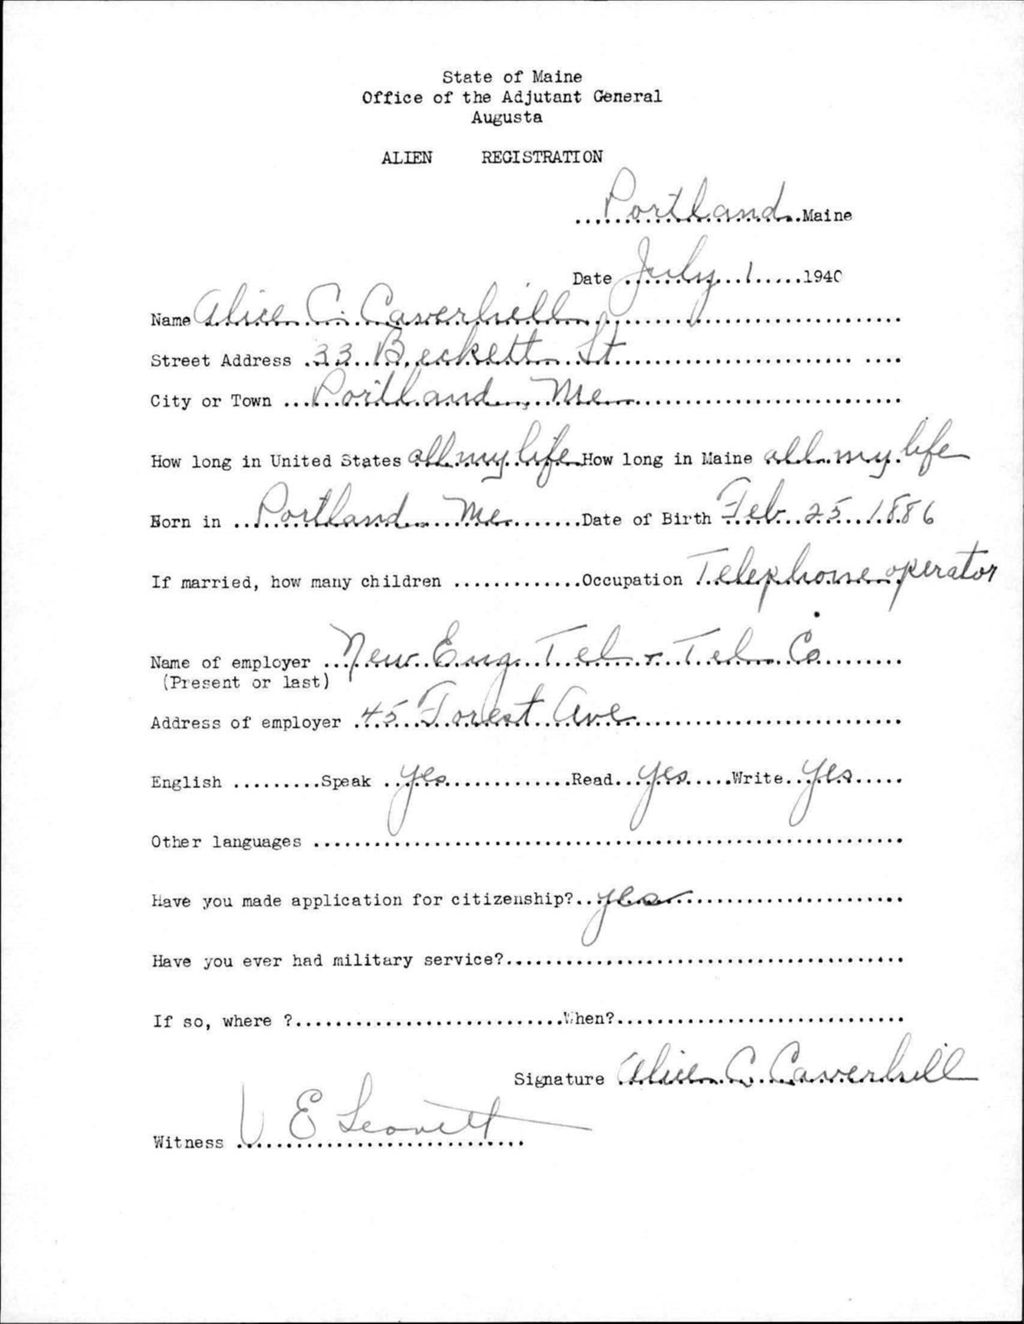 State of Maine
Office of the Adjutant General
Augusta
ALIEN REGISTRATION
Portland Maine
Date July 1 1940
Name Alice C. Caverhill
Street Address 33 Beckett St
City or Town Portland, Me
How long in United States all my life How long in Maine all my life
Born in Portland Me. Date of Birth Feb. 25 1886
If married, how many children Occupation Telephone operator
Name of employer New Eng. Tel & Tel. Co
(Present or last)
Address of employer 45 Forest Ave
English Speak yes Read yes Write yes
Other languages
Have you made application for citizenship? yes
Have you ever had military service?
If so, where ? When?
Signature Alice C. Caverhill
Witness V E Leavitt